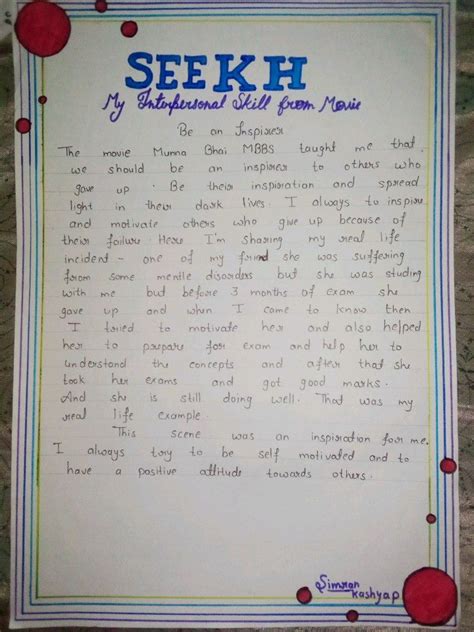 SEEKH
My Interpersonal Skill from Movie
Be an Inspirer
The movie Munna Bhai MBBS taught me that
we should be an inspirer to others who
gave up. Be their inspiration and spread
light in their dark lives. I always to inspire
and motivate others who give up because of
their failure. Here I'm sharing my real life
incident - one of my friend she was suffering
from some mentle disorders but she was studing
with me but before 3 months of exam she
gave up and when I come to know then
I tried to motivate her and also helped
her to prepare for exam and help her to
understand the concepts and after that she
took her exams and got good marks.
And she is still doing well. That was my
real life example.
This scene was an inspiration for me.
I always try to be self motivated and to
have a positive attitude towards others.
Simran
Kashyap